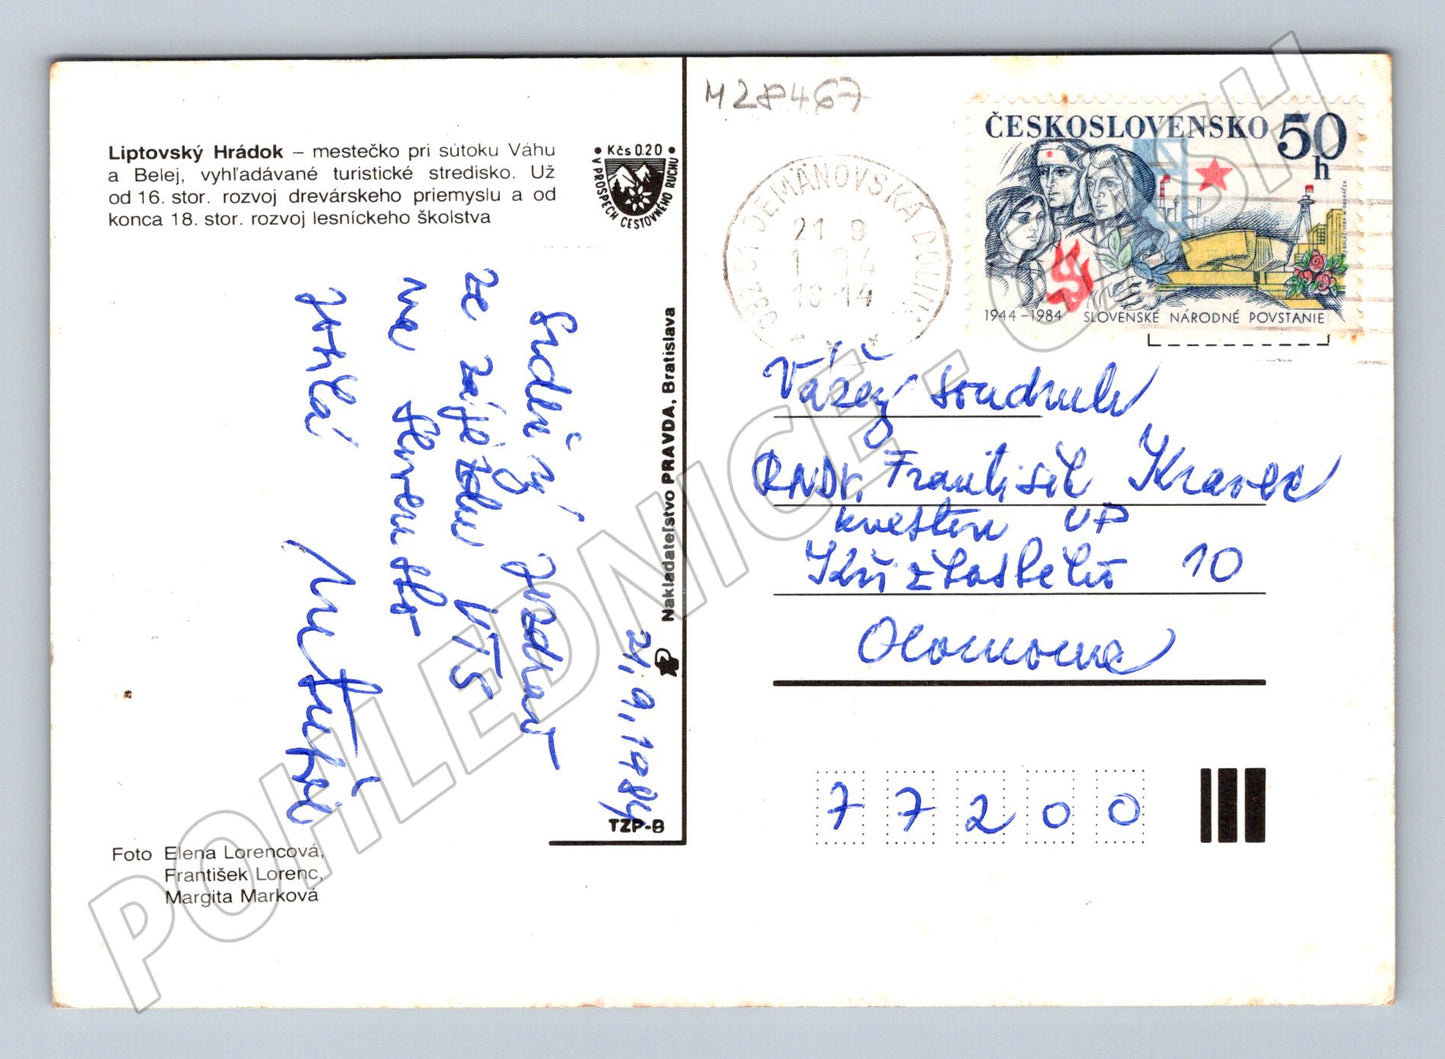 M28467
Liptovský Hrádok – mestečko pri sútoku Váhu
a Belej, vyhľadávané turistické stredisko. Už
od 16. stor. rozvoj drevárskeho priemyslu a od
konca 18. stor. rozvoj lesníckeho školstva
Kčs 0.20
V PROSPECH CESTOVNÉHO RUCHU
Nakladateľstvo PRAVDA, Bratislava
TZP-8
21.9.1984
Srdečný pozdrav
ze zájezdu VTS
na Slovensko
posílá
Foto Elena Lorencová,
František Lorenc,
Margita Marková
032 51 DEMÄNOVSKÁ DOLINA
21 9
ČESKOSLOVENSKO 50
h
1944–1984 SLOVENSKÉ NÁRODNÉ POVSTANIE
Vážený soudruh
RNDr. František Kravec
kvestor UP
Křížkovského 10
Olomouc
77200
POHLEDNICE - CSH